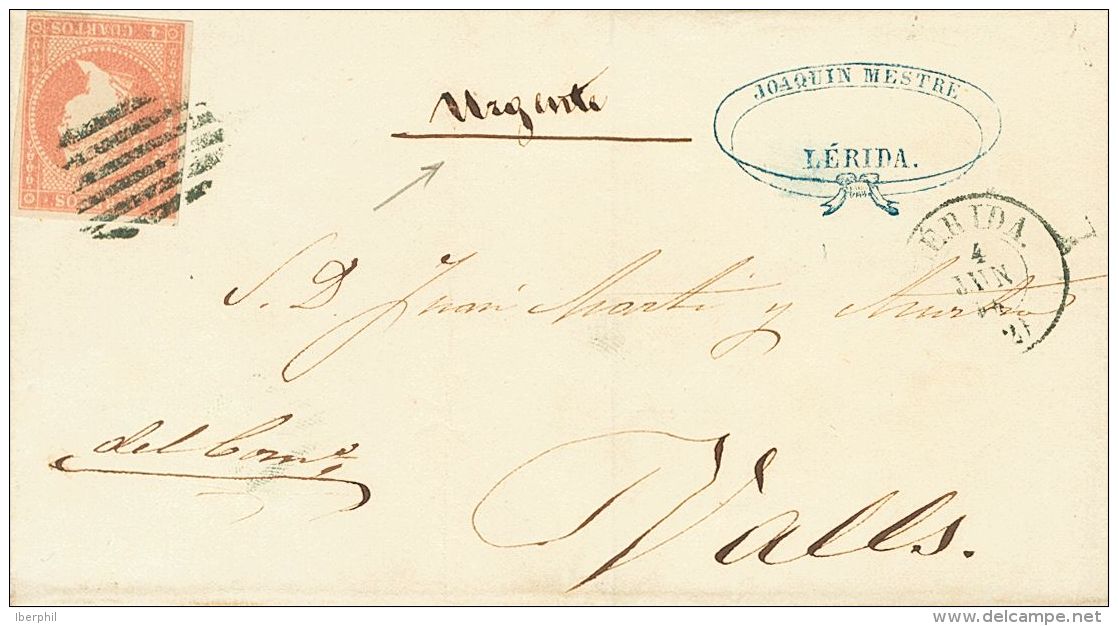 4 CUARTOS
Urgente
JOAQUIN MESTRE
LÉRIDA.
ÉRIDA.
4
JUN
S. D. Juan Martí y
del Como
Valls.
Iberphil
delcampe.net